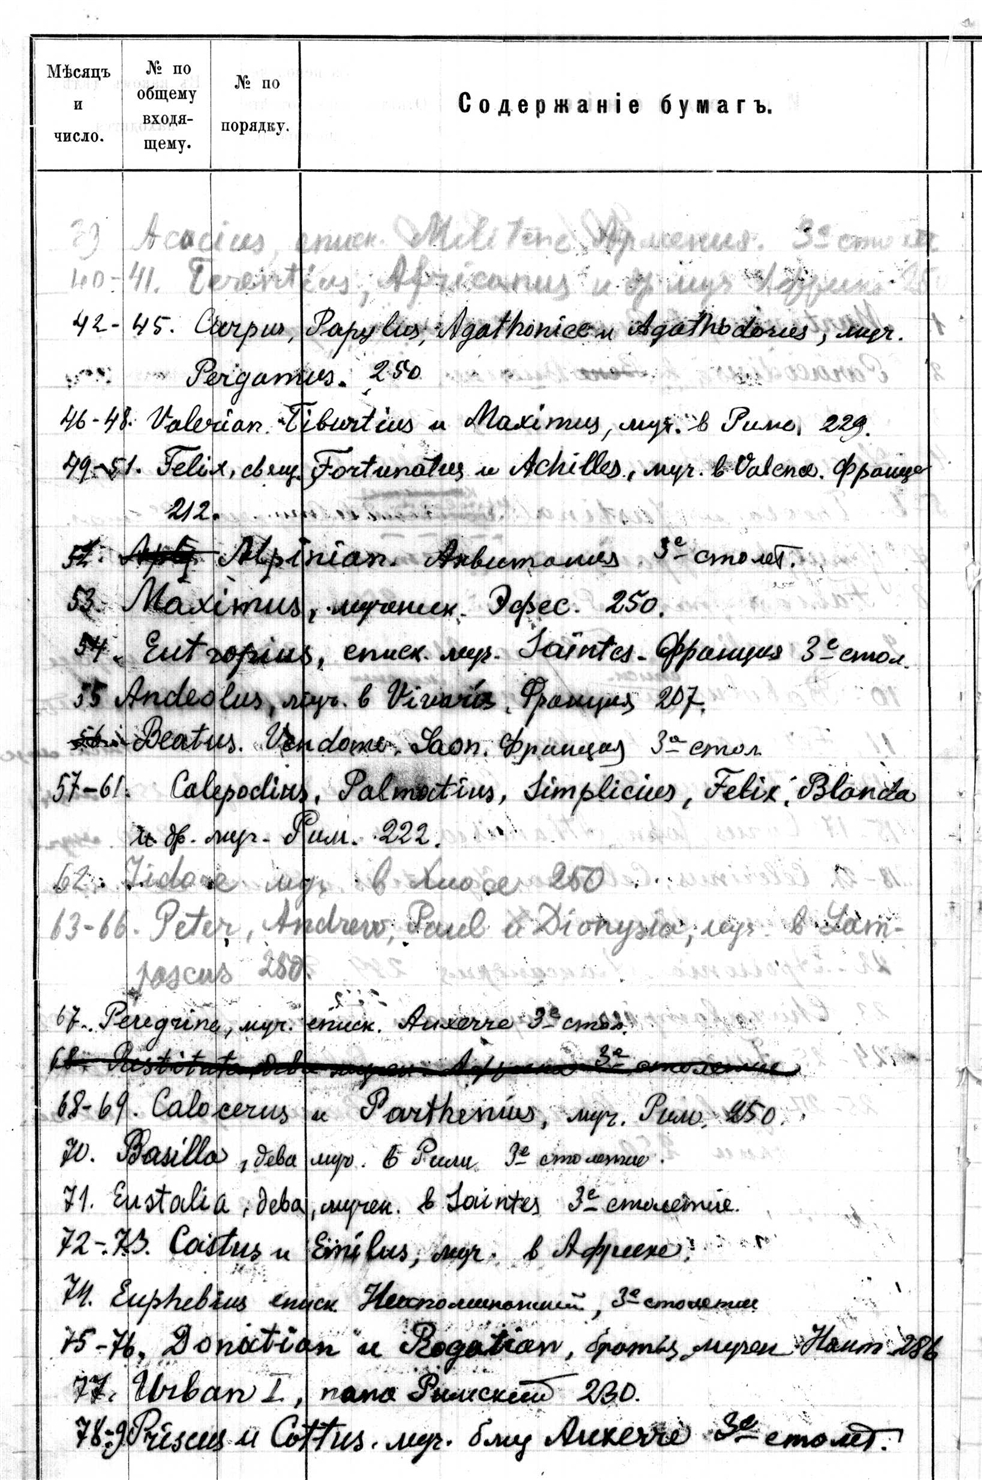 Мѣсяцъ и число.
№ по общему входя-щему.
№ по порядку.
Содержаніе бумагъ.
39 Acacius, еписк. Militene, Армения. 3е столет
40-41. Terentius, Africanus и др муч Африка 250
42-45. Carpus, Papylus, Agathonice и Agathodorus, муч.
Pergamus. 250
46-48. Valerian. Tiburtius и Maximus, муч. в Риме, 229.
49-51. Felix, свящ. Fortunatus и Achilles, муч. в Valence. Франце
212.
52. Alpinian. Аквитания 3е столет.
53. Maximus, мученик. Эфес. 250.
54. Eutropius, еписк. муч. Saintes. Франция 3е стол.
55 Andeolus, муч. в Vivaris, Франция 207.
56. Beatus. Vendome. Laon. Франция 3е стол
57-61. Calepodius, Palmatius, Simplicius, Felix, Blanda
и др. муч. Рим. 222.
62. Isidore муч. в Хиосе 250
63-66. Peter, Andrew, Paul и Dionysia, муч. в Lam-
pascus 250.
67. Peregrine, муч. еписк. Auxerre 3е стол.
68. Restituta, дева мучен. Африка 3е столетие
68-69. Calocerus и Parthenius, муч. Рим. 250.
70. Basilla, дева муч. в Риме 3е столетие.
71. Eustalia, дева, мучен. в Saintes 3е столетие.
72-73. Castus и Emilus, муч. в Африке.
74. Euphebius еписк Неаполитанский, 3е столетие
75-76. Donatian и Rogatian, братья, мучен Нант 286
77. Urban I, папа Римский 230.
78-9 Priscus и Cottus. муч. близ Auxerre 3е столет.